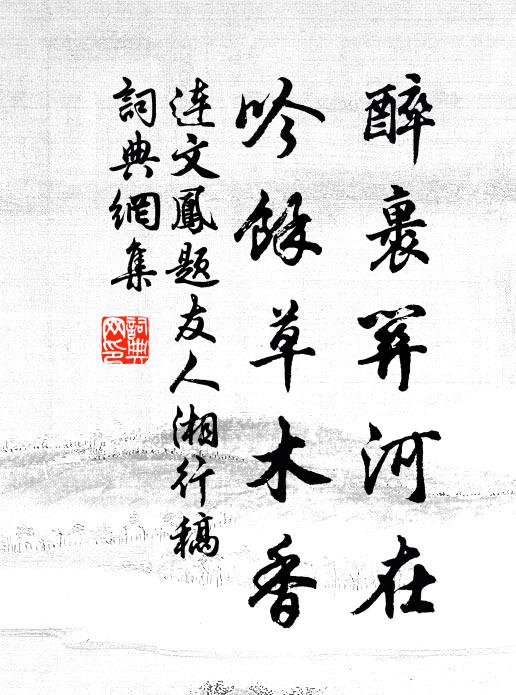 醉裏關河在
吟餘草木香
連文鳳題友人湘行稿
詞典網集
詞典网印